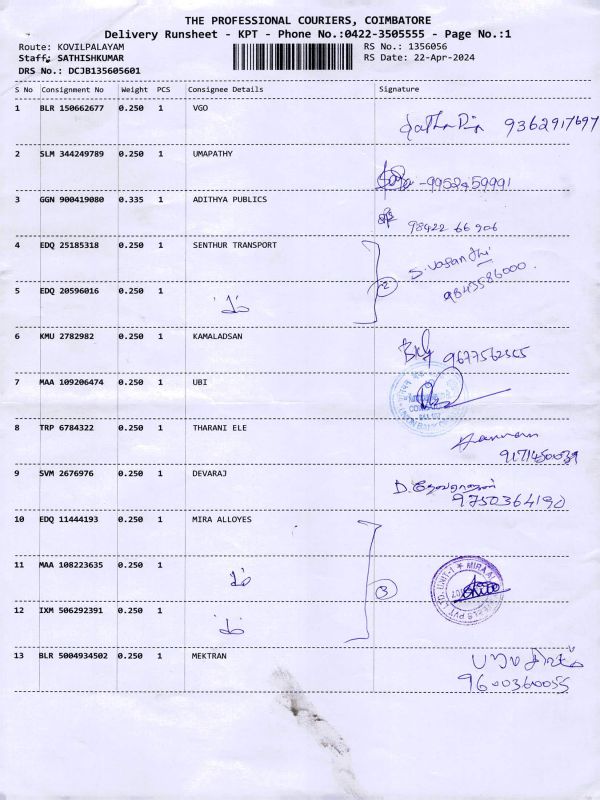 THE PROFESSIONAL COURIERS, COIMBATORE
Delivery Runsheet - KPT - Phone No.:0422-3505555 - Page No.:1
Route: KOVILPALAYAM RS No.: 1356056
Staff: SATHISHKUMAR RS Date: 22-Apr-2024
DRS No.: DCJB135605601
S No Consignment No Weight PCS Consignee Details Signature
1 BLR 150662677 0.250 1 VGO
9362917697
2 SLM 344249789 0.250 1 UMAPATHY
3 GGN 900419080 0.335 1 ADITHYA PUBLICS
98422 66 906
4 EDQ 25185318 0.250 1 SENTHUR TRANSPORT
S. Vasanthi
2 9843586000.
5 EDQ 20596016 0.250 1
6 KMU 2782982 0.250 1 KAMALADSAN
7 MAA 109206474 0.250 1 UBI
8 TRP 6784322 0.250 1 THARANI ELE
9 SVM 2676976 0.250 1 DEVARAJ
9750364190
10 EDQ 11444193 0.250 1 MIRA ALLOYES
11 MAA 108223635 0.250 1
3
12 IXM 506292391 0.250 1
13 BLR 5004934502 0.250 1 MEKTRAN
9600360055